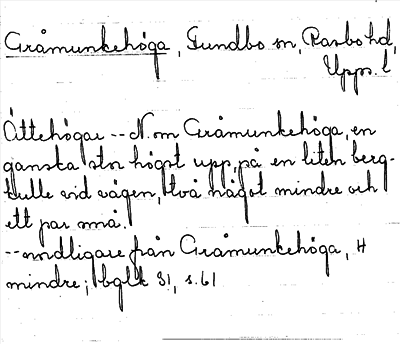 Gråmunkehöga, Gundbo sn, Rasbo hd,
Upps. l
Ättehögar -- N. om Gråmunkehöga, en
ganska stor högst upp, på en liten berg-
kulle vid vägen, två något mindre och
ett par små.
-- nordligare från Gråmunkehöga, 4
mindre; bglk 31, s. 61